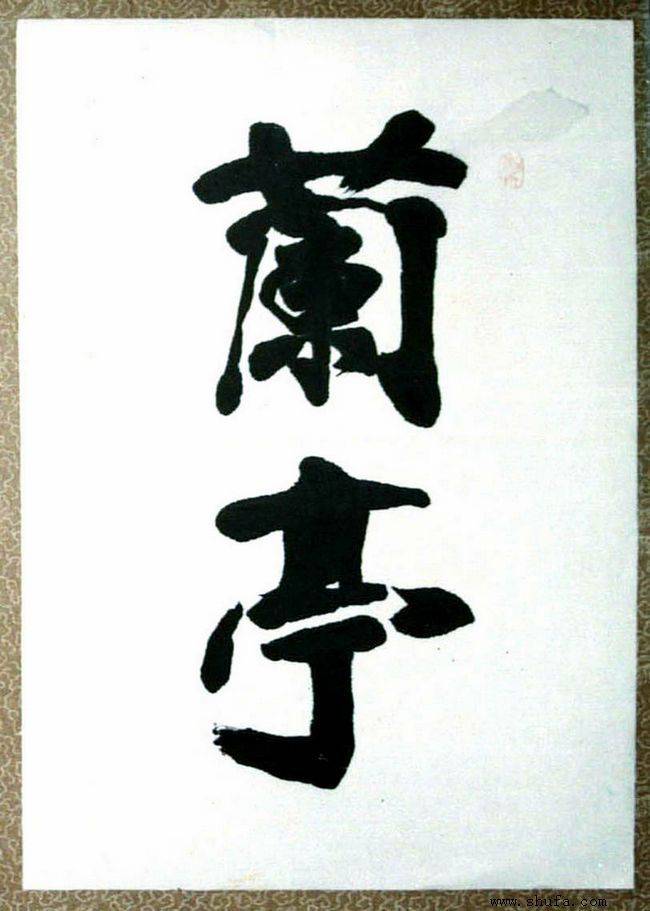 蘭亭
www.shufa.com